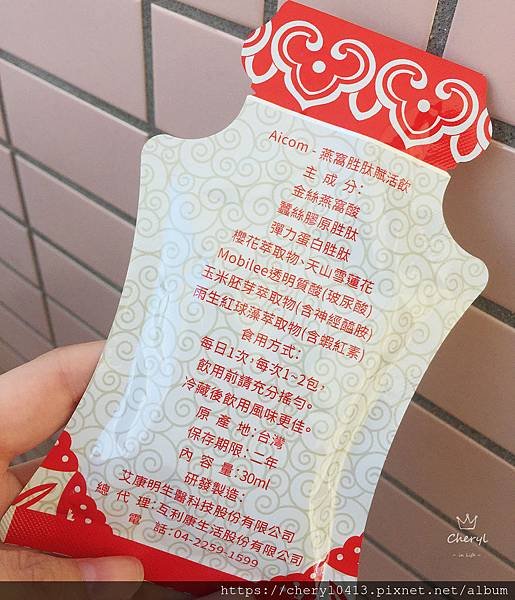 Aicom - 燕窩胜肽賦活飲
主 成 分:
金絲燕窩酸
蠶絲膠原胜肽
彈力蛋白胜肽
櫻花萃取物、天山雪蓮花
Mobilee透明質酸(玻尿酸)
玉米胚芽萃取物(含神經醯胺)
雨生紅球藻萃取物(含蝦紅素
食用方式:
每日1次,每次1~2包,
飲用前請充分搖勻。
冷藏後飲用風味更佳。
原 產 地:台灣
保存期限:二年
內 容 量:30ml
研發製造:
艾康明生醫科技股份有限公司
總 代 理:互利康生活股份有限公司
電 話:04-2259-1599
Cheryl
~ in Life ~
https://cheryl0413.pixnet.net/album